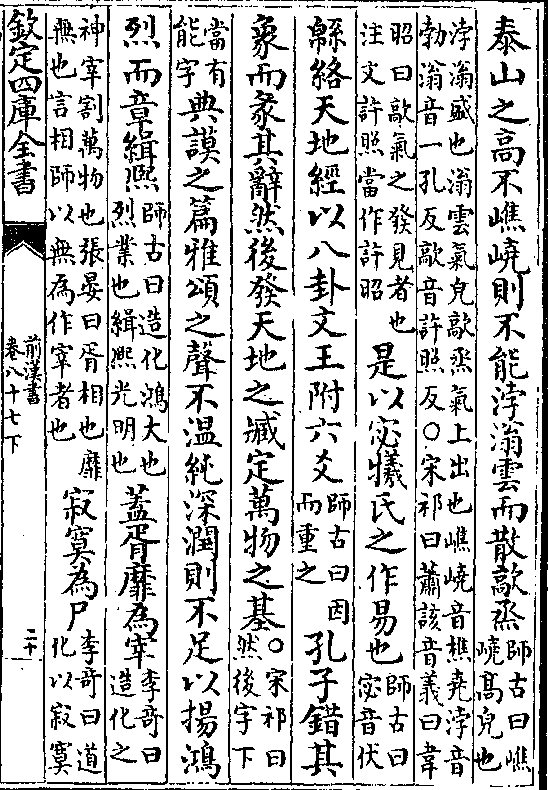 泰山之高不嶕嶢則不能浡滃雲而散歊烝師古曰嶕嶢高皃也
浡滃盛也滃雲氣皃歊烝氣上出也嶕嶢音樵堯浡音
勃滃音一孔反歊音許照反○宋祁曰蕭該音義曰韋
昭曰歊氣之發見者也注文許照當作許昭是以宓犧氏之作易也師古曰宓音伏
緜絡天地經以八卦文王附六爻師古曰因而重之孔子錯其
象而彖其辭然後發天地之臧定萬物之基○宋祁曰然後字下
當有能字典謨之篇雅頌之聲不溫純深潤則不足以揚鴻
烈而章緝熙師古曰造化鴻大也烈業也緝熙光明也蓋胥靡為宰李奇曰造化之
神宰割萬物也張晏曰胥相也靡無也言相師以無為作宰者也寂寞為尸李奇曰道化以寂寞
欽定四庫全書
前漢書
卷八十七下
二十